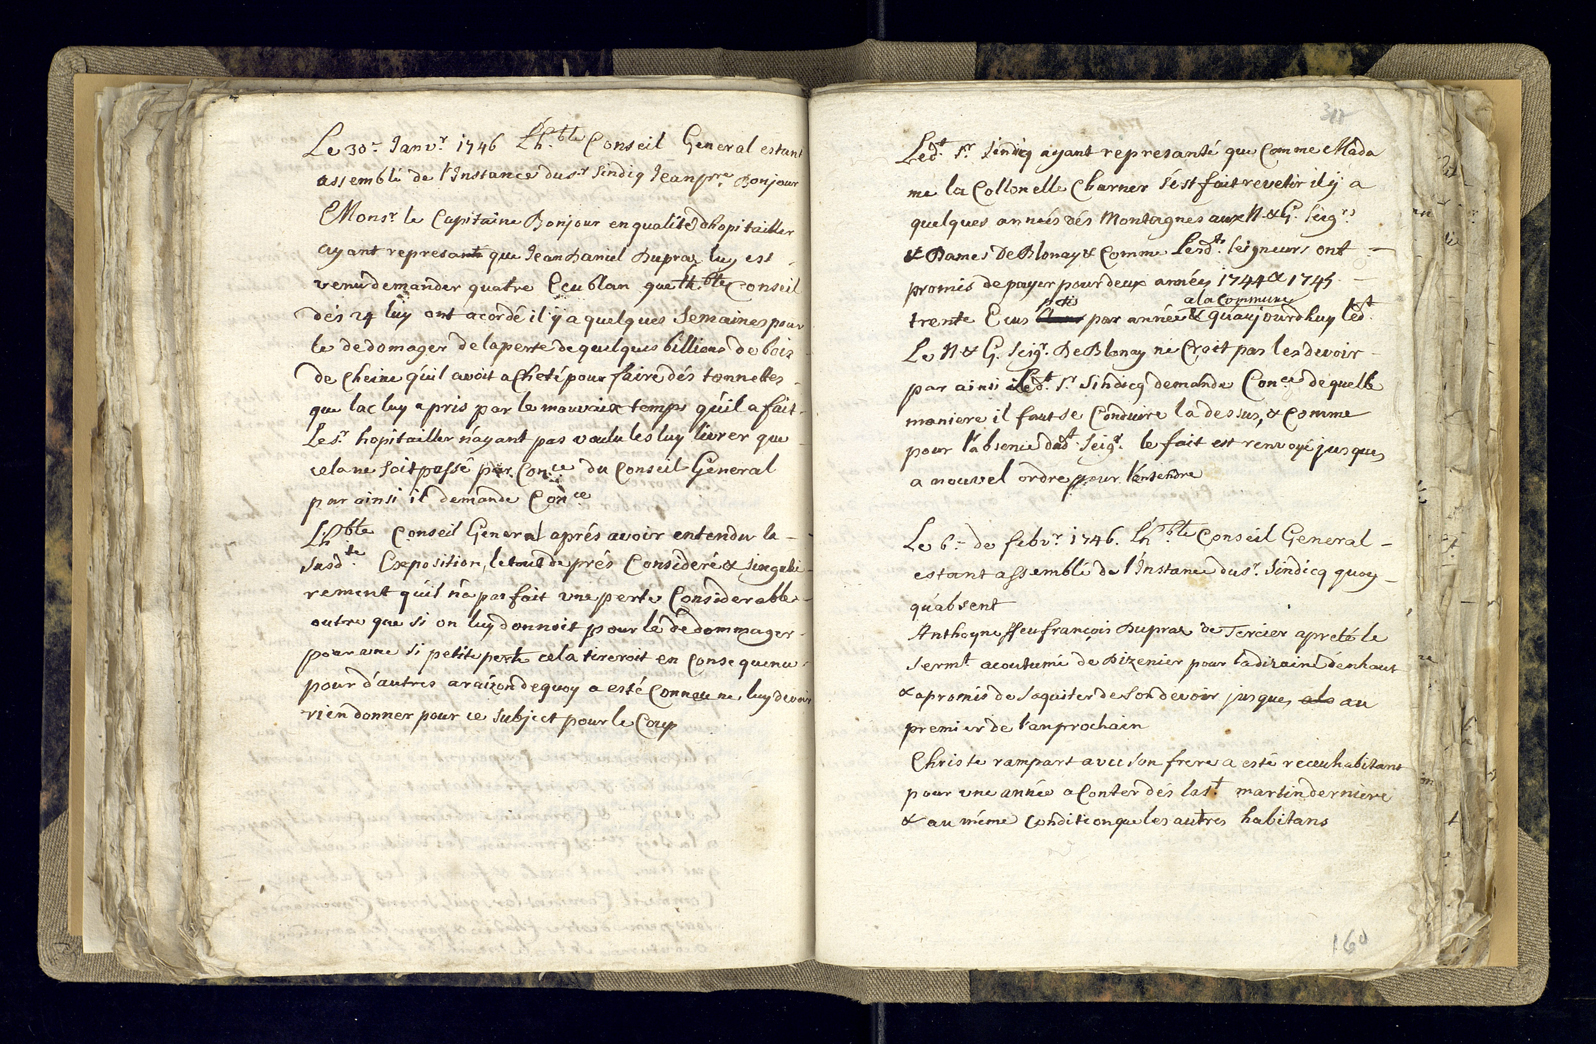 Le 30.e Janv.r 1746 L'h.ble Conseil General estant
assemblé de l'Instance du s.r Sindiq Jean p.re Bonjour
Mons.r le Capitaine Bonjour en qualité d'hopitailler
ayant represanté que Jean Daniel Dupraz luy est
venu demander quatre Ecu blan que lh.ble Conseil
dés 24 luy ont acordé il y a quelques Semaines pour
le dedomager de la perte de quelques billions de bois
de cheine qu'il avoit acheté pour faire dés tonnelles
que lac luy a pris par le mauvaix temps qu'il a fait
Le s.r hopitailler n'ayant pas voulu les luy livrer que
cela ne soit passé par Con.ce du Conseil General
par ainsi il demande Con.ce
Lh.ble Conseil General aprés avoir entendu la
susd.te Exposition, le tout de prés Consideré &
rement qu'il n'a pas fait une perte Considerable
outre que si on luy donnoit pour le dédommager
pour une si petite perte cela tireroit en Consequence
pour d'autres a raizon dequoy a esté Connu ne luy devoir
rien donner pour ce Subject pour le Coup
317
Led.t S.r Sindiq ayant represanté que Comme Mada
me la Collonelle Charner s'est fait revetir il y a
quelques années dés Montagnes aux N. & G. Seig.rs
& Dames De Blonay & Comme Lesd.ts Seigneurs ont
promis de payer pour deux années 1744 & 1745
a la Commune
trente Ecus par année & qu'aujourdhuy led.t
Le N & G. Seig.r De Blonay ne Croit pas les devoir
par ainsi Led.t S.r Sindicq demande Con.ce de quelle
maniere il faut se Conduire la dessus, & Comme
pour l'absence dud.t Seig.r le fait est renvoyé jusques
a nouvel ordre pour l'entendre
Le 6.e de febv.r 1746. L'h.ble Conseil General
estant assemblé de l'Instance du s.r Sindicq quoy
qu'absent
Anthoyne ffeu françois Dupraz de Tercier a preté le
serm.t acoutumé de Dizenier pour la dizaine d'enhaut
& a promis de s'aquiter de son devoir jusques au
premier de l'an prochain
Christe rampart avec son frere a esté receu habitant
pour une année a Conter dés la s.t martin derniere
& au méme Condition que les autres habitans
160